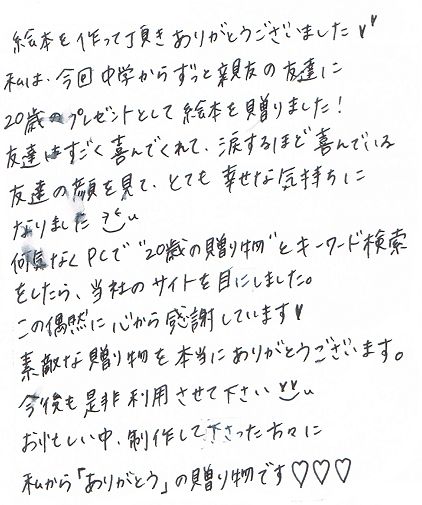 絵本を作って頂きありがとうございました♥♥
私は、今回中学からずっと親友の友達に
20歳のプレゼントとして絵本を贈りました！
友達はすごく喜んでくれて、涙するほど喜んでいる
友達の顔を見て、とても幸せな気持ちに
なりました
何気なくPCで“20歳の贈り物”とキーワード検索
をしたら、当社のサイトを目にしました。
この偶然に心から感謝しています♥
素敵な贈り物を本当にありがとうございます。
今後も是非利用させて下さい
お忙しい中、制作して下さった方々に
私から「ありがとう」の贈り物です♡♡♡